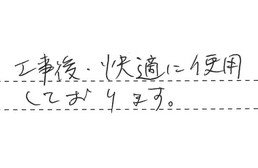 工事後、快適に使用
しております。